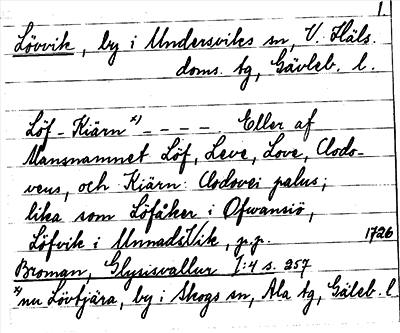 1.
Lövvik, by i Undersviks sn, V. Häls.
doms. tg, Gävleb. l.
Löf-Kiärn x) - - - - Eller af
Mansnamnet Löf, Leve, Love, Clodo-
veus, och Kiärn: Clodovei palus;
lika som Löfåker i Ofwansiö,
Löfvik i UnnadsVik, p.p. 1726
Broman, Glysisvallur I:4 s. 257
x) nu Lövtjära, by i Skogs sn, Ala tg, Gäleb. l